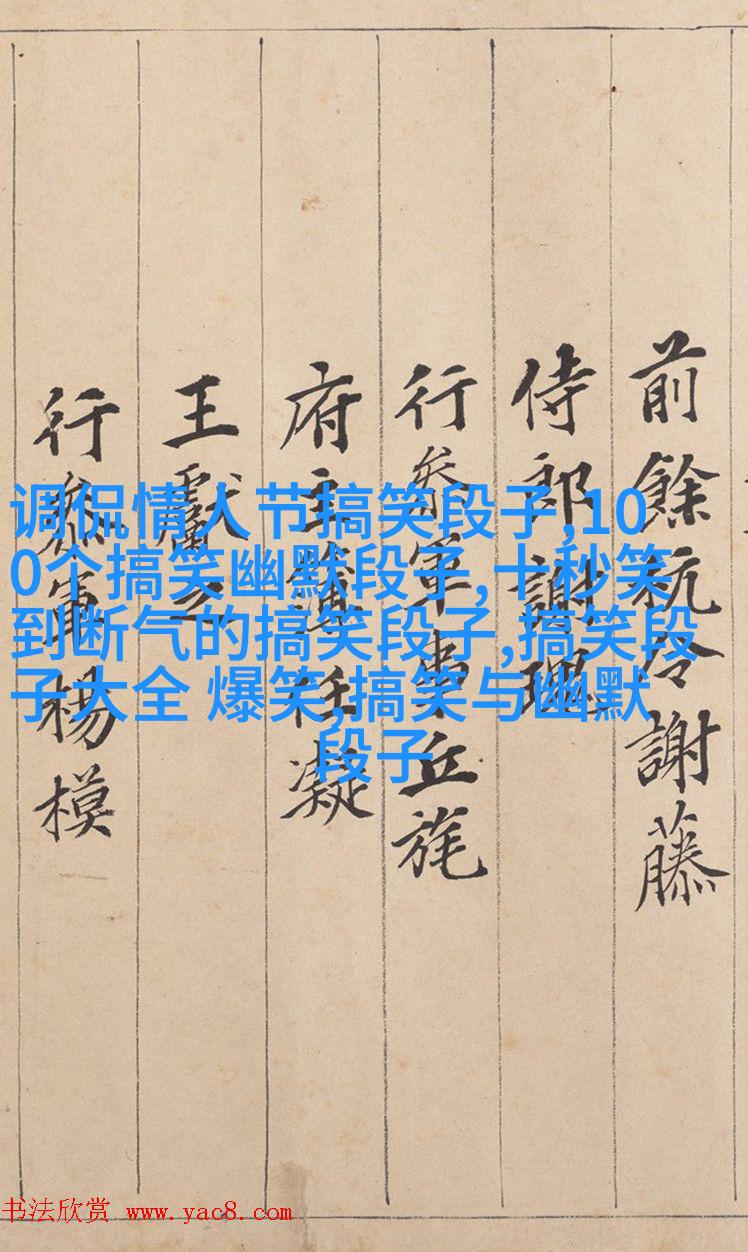 前餘杭令謝藤
侍郎謝
行叅軍事丘旄
府主簿任凝
王獻之
行叅軍楊模
调侃情人节搞笑段子,10
0个搞笑幽默段子,十秒笑
到断气的搞笑段子,搞笑段
子大全 爆笑,搞笑与幽默
段子
书法欣赏 www.yac8.com